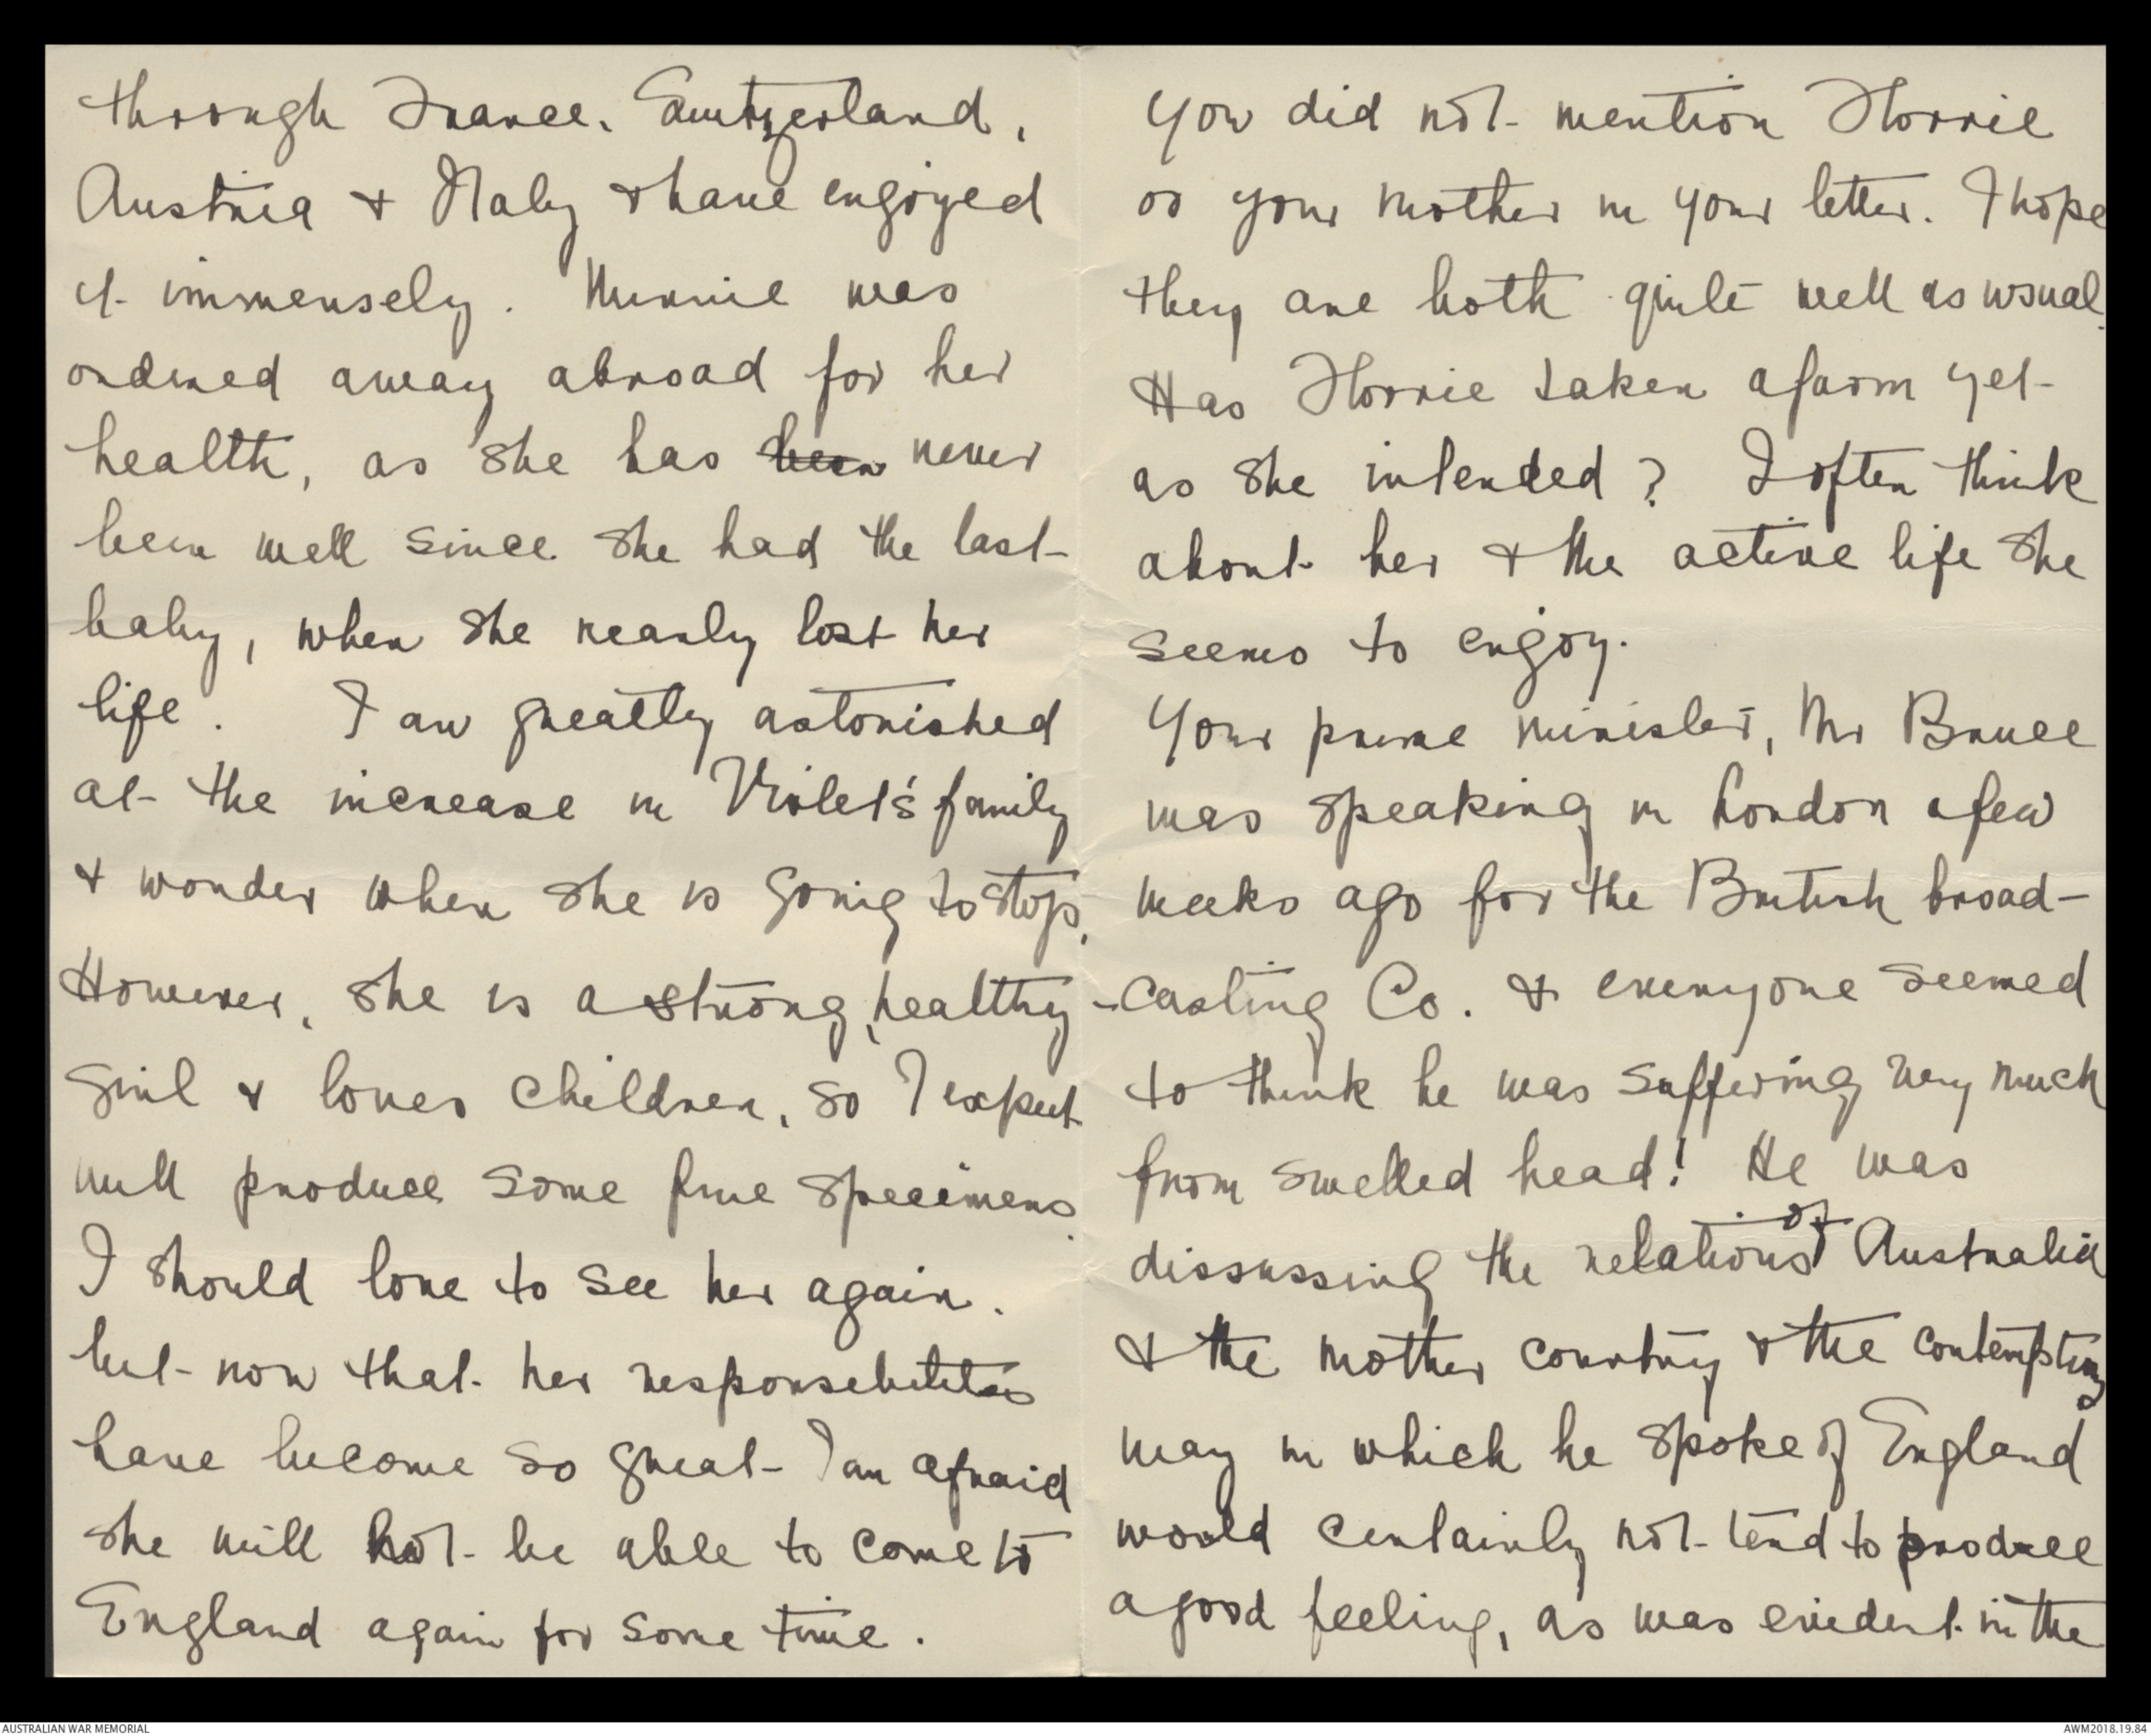 through France, Switzerland,
Austria & Italy & have enjoyed
it immensely. Minnie was
ordered away abroad for her
health, as she has been never
been well since she had the last
baby, when she nearly lost her
life. I am greatly astonished
at the increase in Violet's family
& wonder when she is going to stop.
However, she is a strong, healthy
girl & loves children, so I expect
will produce some fine specimens.
I should love to see her again.
but now that her responsebilities
have become so great I am afraid
she will not be able to come to
England again for some time.
You did not mention Florrie
or your mother in your letter. I hope
they are both quite well as usual.
Has Florrie taken a farm yet
as she intended? I often think
about her & the active life she
seems to enjoy.
Your prime minister, Mr Bruce
was speaking in London a few
weeks ago for the British broad-
-casting Co. & everyone seemed
to think he was suffering very much
from swelled head! He was
disscussing the relations of Australia
& the mother country & the contempting
way in which he spoke of England
would certainly not tend to produce
a good feeling, as was evident in the
AUSTRALIAN WAR MEMORIAL
AWM2018.19.84